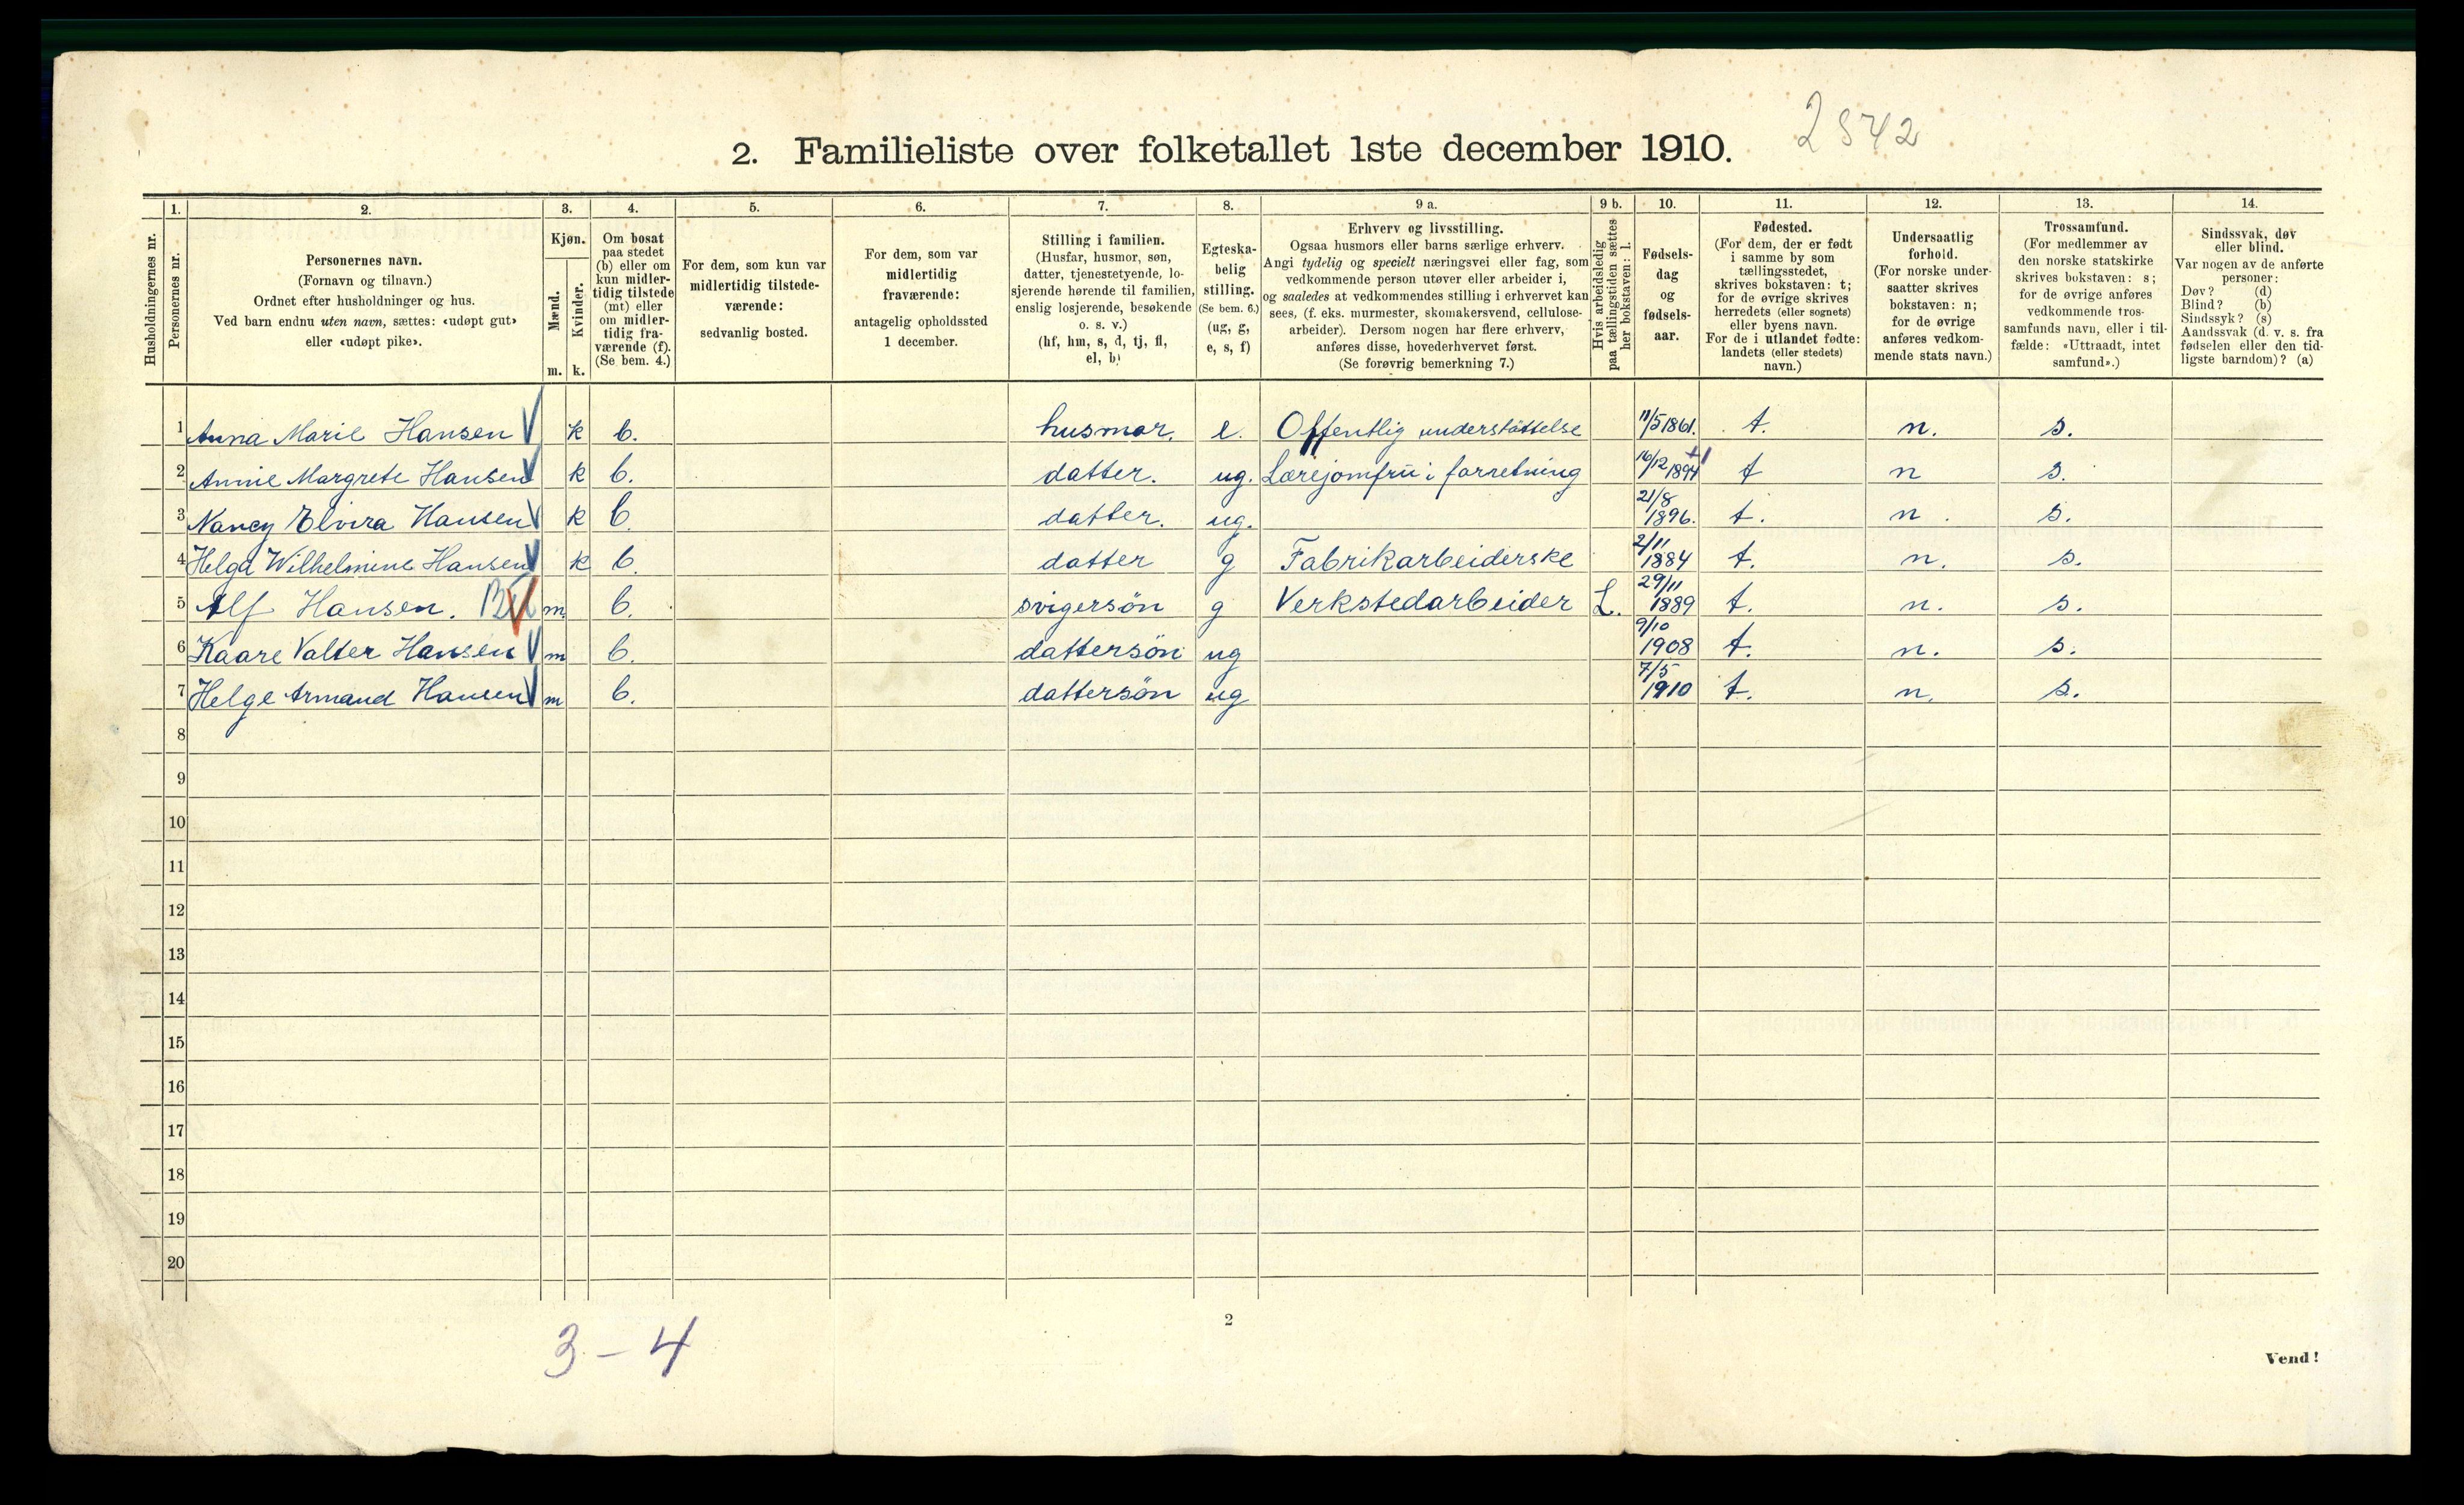 2842
2. Familieliste over folketallet 1ste december 1910.
Husholdningernes nr.
1.
Personernes nr.
2.
Personernes navn.
(Fornavn og tilnavn.)
Ordnet efter husholdninger og hus.
Ved barn endnu uten navn, sættes: «udøpt gut»
eller «udøpt pike».
3.
Kjøn.
Mænd.
Kvinder.
m. k.
4.
Om bosat
paa stedet
(b) eller om
kun midler-
tidig tilstede
(mt) eller
om midler-
tidig fra-
værende (f).
(Se bem. 4.)
5.
For dem, som kun var
midlertidig tilstede-
værende:
sedvanlig bosted.
6.
For dem, som var
midlertidig
fraværende:
antagelig opholdssted
1 december.
7.
Stilling i familien.
(Husfar, husmor, søn,
datter, tjenestetyende, lo-
sjerende hørende til familien,
enslig losjerende, besøkende
o. s. v.)
(hf, hm, s, d, tj, fl,
el, b)
8.
Egteska-
belig
stilling.
(Se bem. 6.)
(ug, g,
e, s, f)
9 a.
Erhverv og livsstilling.
Ogsaa husmors eller barns særlige erhverv.
Angi tydelig og specielt næringsvei eller fag, som
vedkommende person utøver eller arbeider i,
og saaledes at vedkommendes stilling i erhvervet kan
sees, (f. eks. murmester, skomakersvend, cellulose-
arbeider). Dersom nogen har flere erhverv,
anføres disse, hovederhvervet først.
(Se forøvrig bemerkning 7.)
9 b.
Hvis arbeidsledig
paa tællingstiden sættes
her bokstaven: l.
10.
Fødsels-
dag
og
fødsels-
aar.
11.
Fødested.
(For dem, der er født
i samme by som
tællingsstedet,
skrives bokstaven: t;
for de øvrige skrives
herredets (eller sognets)
eller byens navn.
For de i utlandet fødte:
landets (eller stedets)
navn.)
12.
Undersaatlig
forhold.
(For norske under-
saatter skrives
bokstaven: n;
for de øvrige
anføres vedkom-
mende stats navn.)
13.
Trossamfund.
(For medlemmer av
den norske statskirke
skrives bokstaven: s;
for de øvrige anføres
vedkommende tros-
samfunds navn, eller i til-
fælde: «Uttraadt, intet
samfund».)
14.
Sindssvak, døv
eller blind.
Var nogen av de anførte
personer:
Døv? (d)
Blind? (b)
Sindssyk? (s)
Aandssvak (d. v. s. fra
fødselen eller den tid-
ligste barndom)? (a)
1 Anna Marie Hansen k b. husmor. e. Offentlig understøttelse 11/5 1861. t. n. s.
2 Annie Margrete Hansen k b. datter. ug. Lærejomfru i forretning 16/12 1894 t n s.
3 Nancy Elvira Hansen k b. datter. ug. 21/8 1896. t. n. s.
4 Helga Wilhelmine Hansen k b. datter g Fabrikarbeiderske 2/11 1884 t. n. s.
5 Alf Hansen. m. b. svigersön g Verkstedarbeider L. 29/11 1889 t. n. s.
6 Kaare Valter Hansen m b. dattersön ug 9/10 1908 t. n. s.
7 Helge Armand Hansen m b. dattersön ug 7/5 1910 t. n. s.
8
9
10
11
12
13
14
15
16
17
18
19
20
2
3 - 4
Vend!